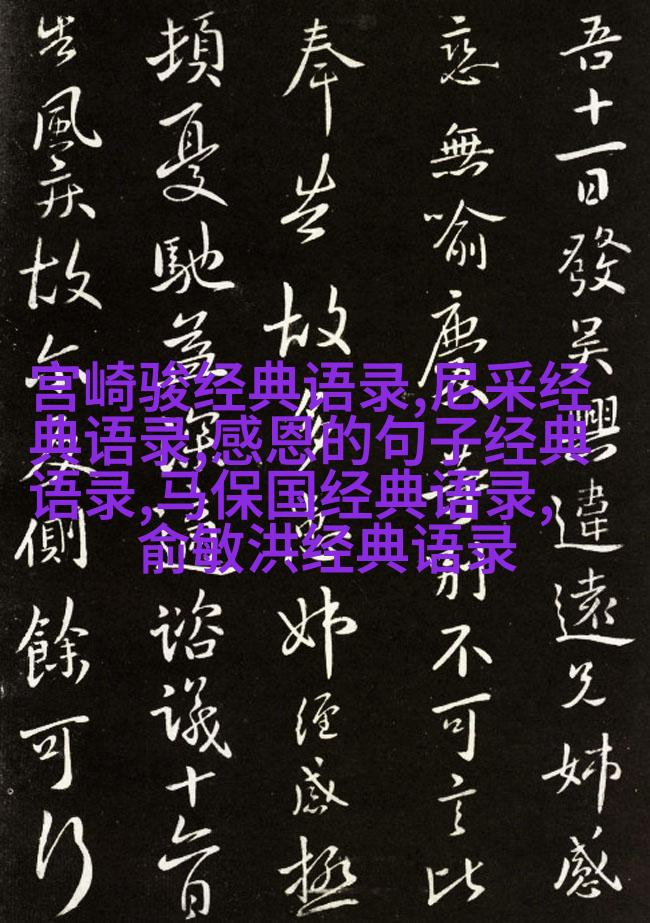 吾十一日發吳興違遠兄姊感
戀無喻別不可言比
奉告故姊經感極
頓憂馳諮議十六日
告風疾故側餘可行
宫崎骏经典语录,尼采经
典语录,感恩的句子经典
语录,马保国经典语录,
俞敏洪经典语录